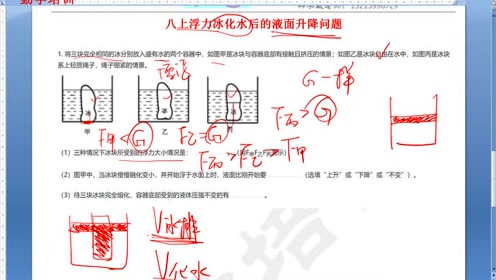 八上浮力冰化水后的液面升降问题
1. 将三块完全相同的冰分别放入盛有水的两个容器中，如图甲是冰块与容器底部有接触且挤压的情景；如图乙是冰块自由在水中，如图丙是冰块
系上轻质绳子，绳子绷紧的情景。
G 一样
F丙 > G
冰 冰 冰
甲 乙 丙
F甲 < G F乙 = G
(1) 三种情况下冰块所受到的浮力大小情况是：
F丙 > F乙 > F甲
(2) 图甲中，当冰块慢慢融化变小，并开始浮于水面上时，液面比刚开始要 (选填“上升”或“下降”或“不变”)。
(3) 待三块冰块完全熔化，容器底部受到的液体压强不变的有 。
V冰排
V化水